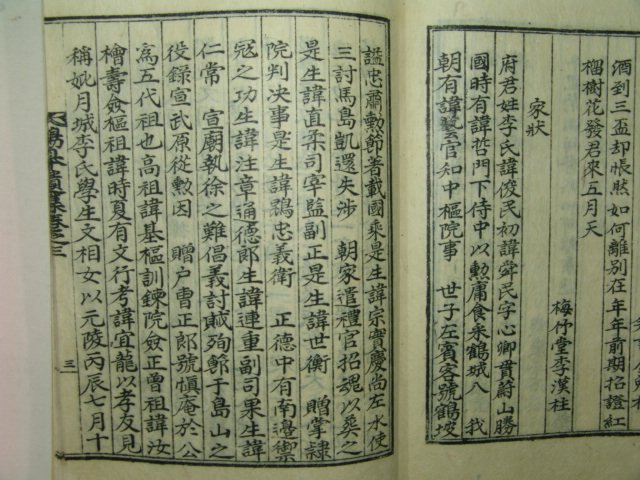 酒到三盃却悵然如何離別在年年前期招證紅
榴樹花發君來五月天
梅竹堂李漢柱
家狀
府君姓李氏諱俊民初諱舜民字心卿貫蔚山勝
國時有諱哲門下侍中以勲庸食采鶴城入 我
朝有諱藝官知中樞院事 世子左賓客號鶴坡
諡忠肅勲節著載國乘是生諱宗實慶尚左水使
三討馬島凱還失涉 朝家遣禮官招魂以葬之
是生諱直柔司宰監副正是生諱世衡 贈掌隷
院判决事是生諱鵾忠義衛 正德中有南邊禦
寇之功生諱注章通德郎生諱連重副司果生諱
仁常 宣廟執徐之難倡義討賊殉節于島山之
役錄宣武原從勲因 贈户曺正郎號愼庵於公
爲五代祖也高祖諱基樞訓鍊院僉正曾祖諱汝
檜壽僉樞祖諱時夏有文行考諱宜龍以孝友見
稱妣月城李氏學生文相女以元陵丙辰七月十
三